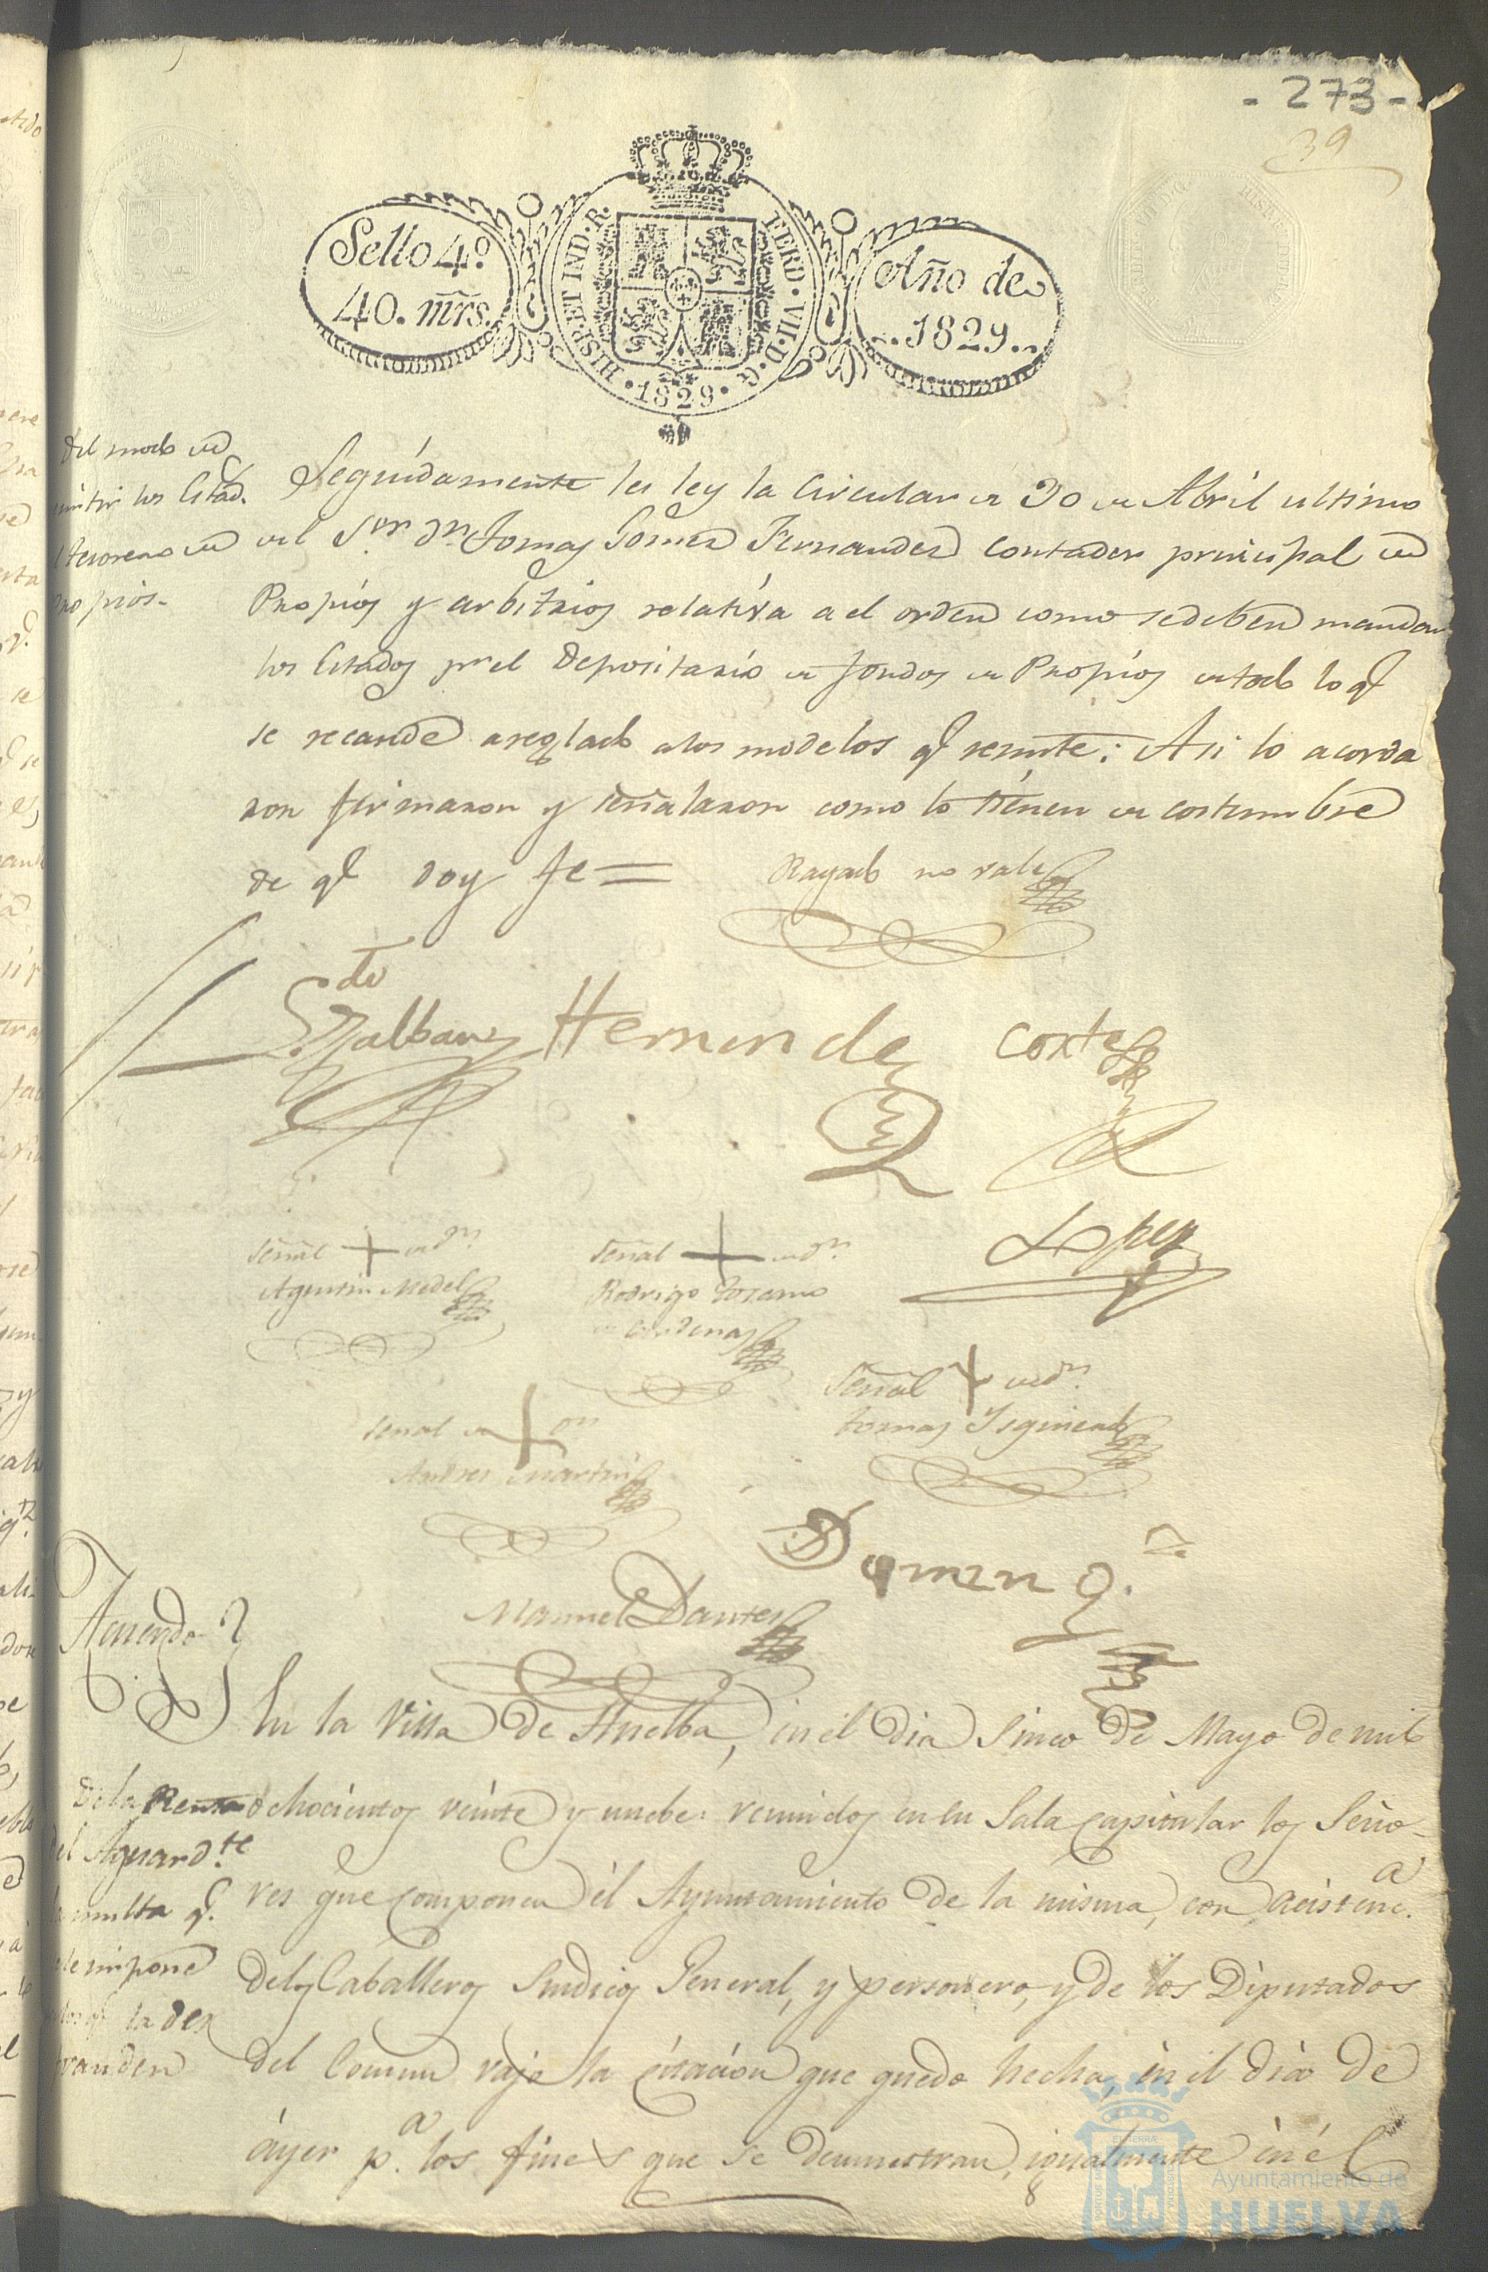 - 273 -
39
Sello 4º.
40. mrs.
HISP. ET IND. R.
FERD. VII. D. G.
1829
Año de
1829.
Del modo de
los Estad.
tesorero de
propios.
Seguidamente les ley la Circular de 30 de Abril ultimo
del Sor. Dn. Tomas Gomez Fernandez contador principal de
Propios y arbitrios relativa a el orden como se deben mandar
los Estados pr. el Depositario de fondos de Propios de todo lo q.
se recaude areglado a los modelos q. remite: Asi lo acorda
ron firmaron y señalaron como lo tienen de costumbre
de q. doy fe =
Rayado no vale
Hernande
Cortes
Lopez
Señal + de Dn.
Agustin Medel
Señal + de Dn.
Rodrigo Lozano
de Cardenas
Señal + de Dn.
Tomas Ysquierdo
Señal de + Dn
Andres Martin
Doming.
Manuel Dantes
Acuerdo
En la Villa de Huelba, en el dia Sinco de Mayo de mil
De la Renta
ochocientos veinte y nuebe: reunidos en su Sala capitular los Seño-
del Aguardte
res que componen el Ayuntamiento de la misma, con acistenc.a
la multa q.
se impone
delos Caballeros Sindicos General, y personero, y de los Diputados
a los q. la den
del Comun vajo la citacion que quedo hecha, en el dia de
ayer p.a los fines que se demuestran, igualmente en el
Ayuntamiento de
HUELVA